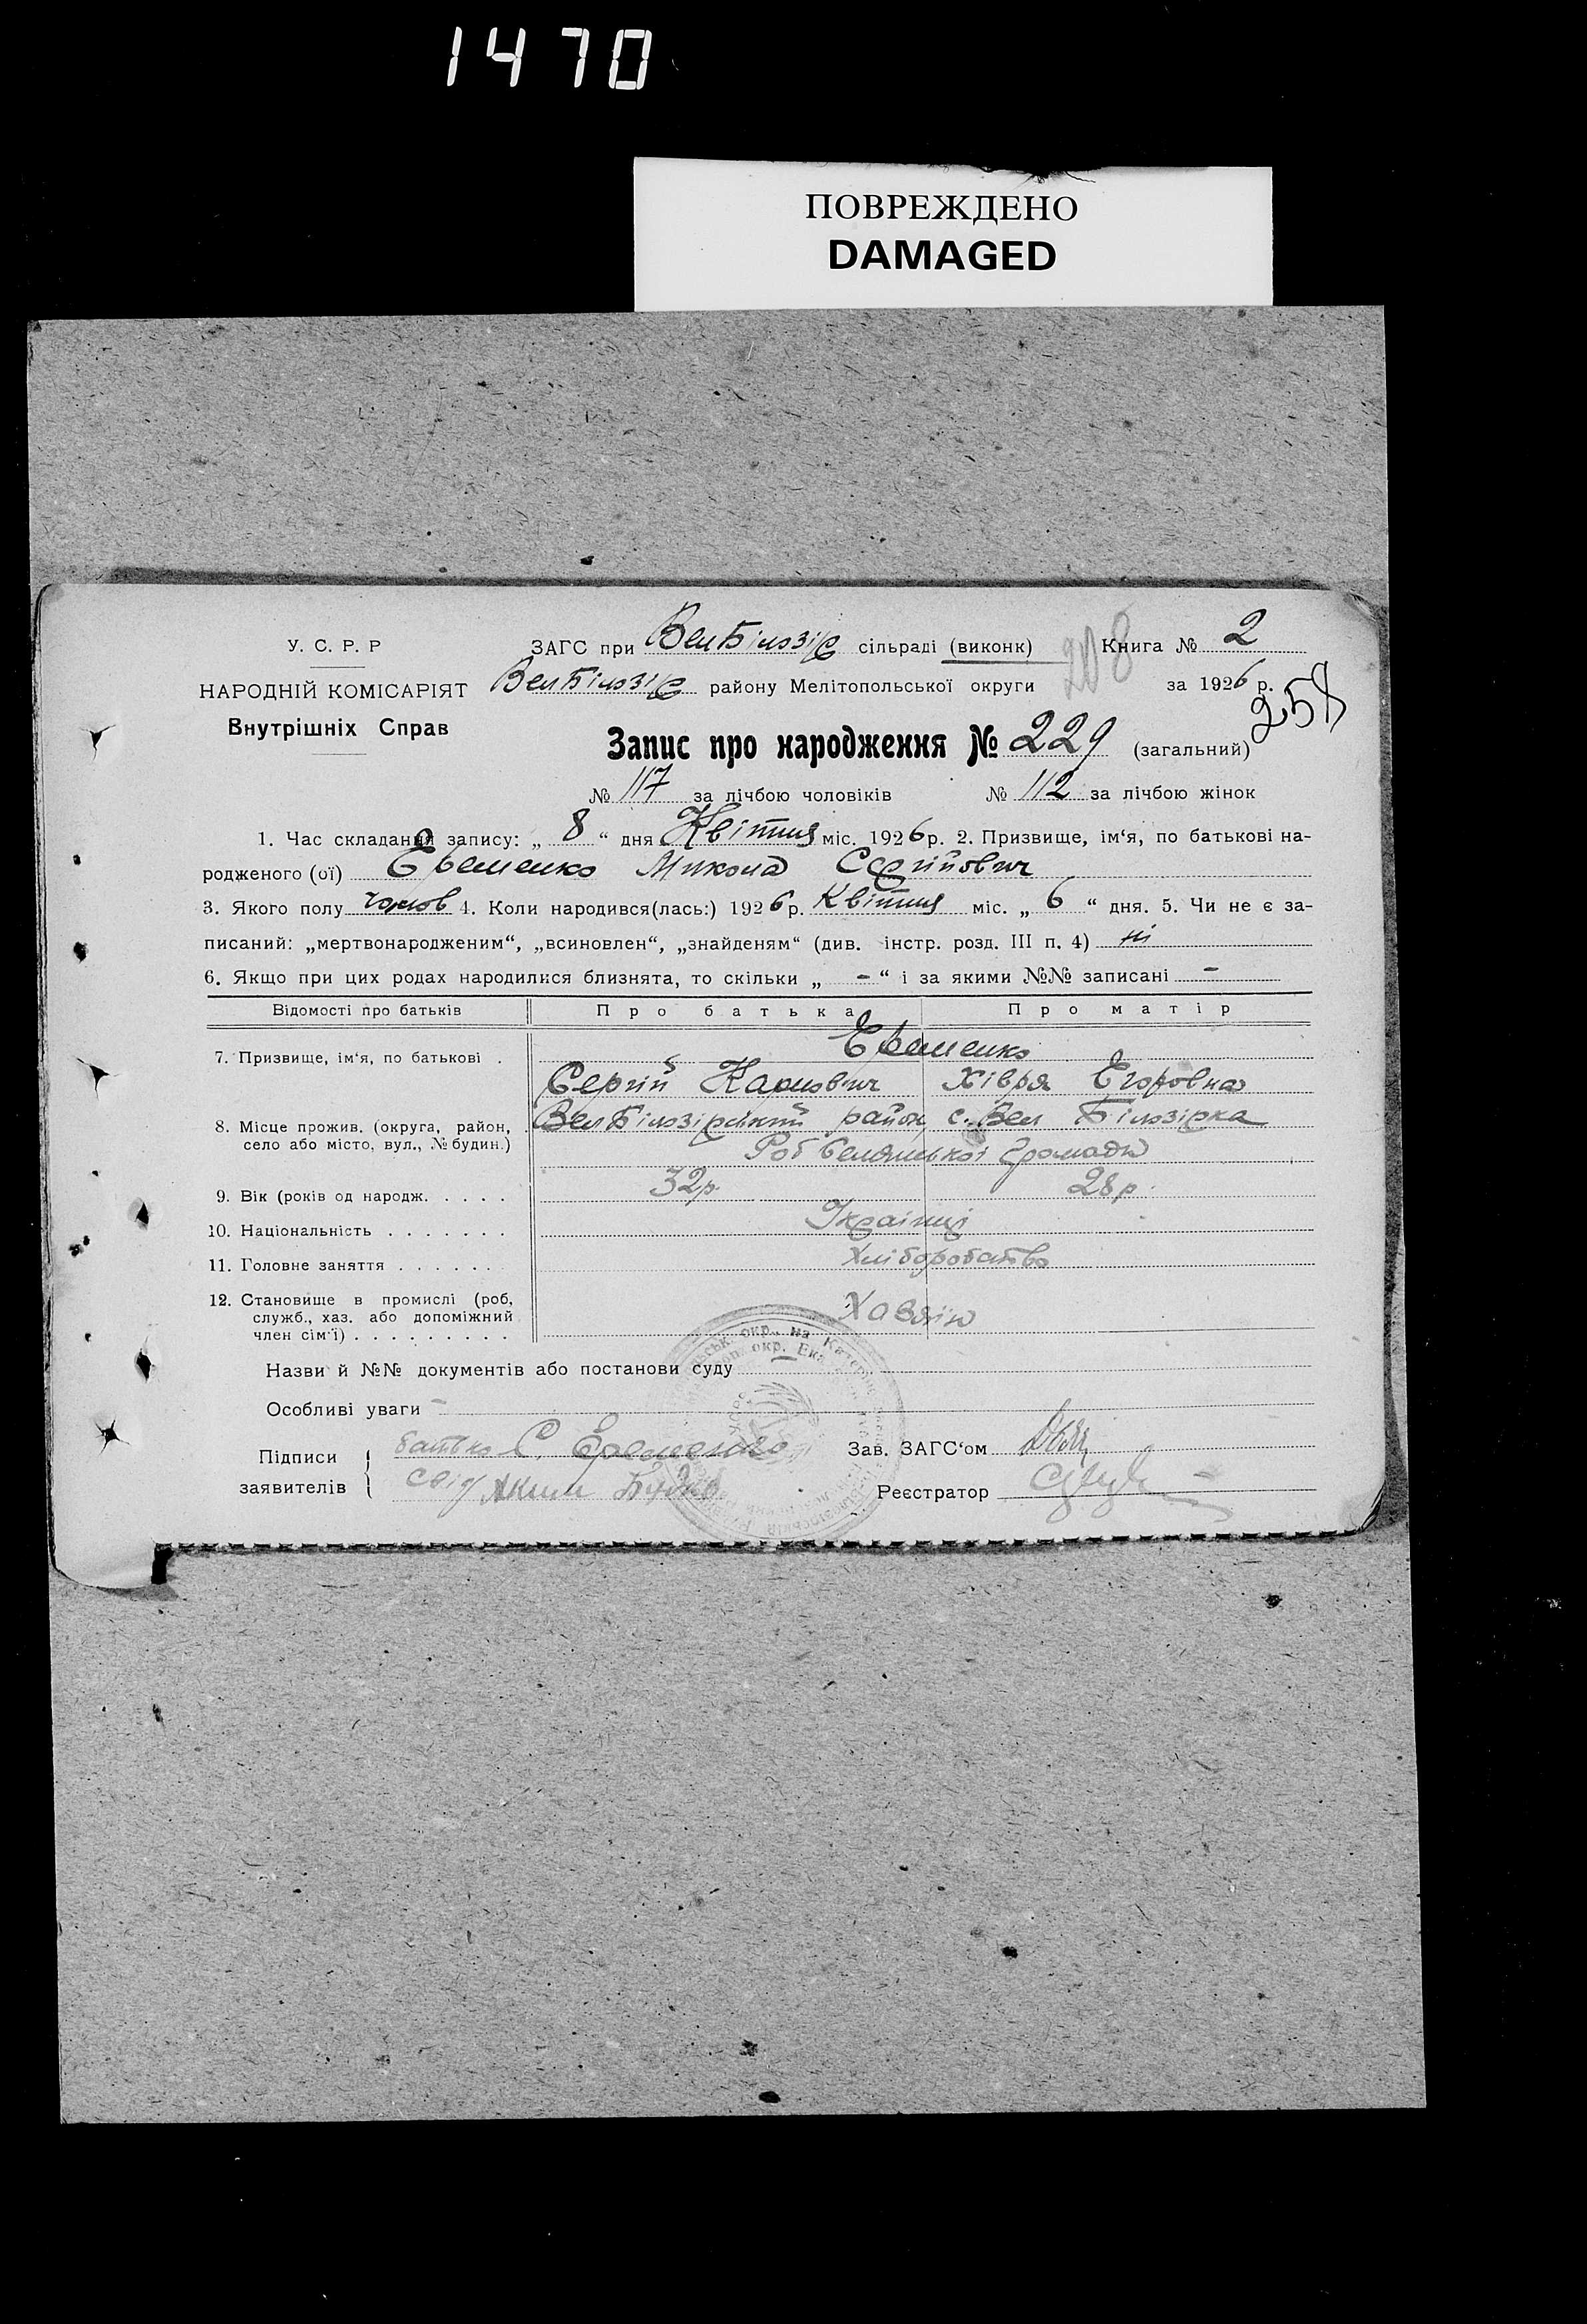 1470
ПОВРЕЖДЕНО
DAMAGED
У. С. Р. Р
НАРОДНІЙ КОМІСАРІЯТ
Внутрішніх Справ
ЗАГС при ВелБілозір сільраді (виконк) Книга № 2
208
ВелБілозір району Мелітопольської округи за 1926 р.
258
Запис про народження № 229 (загальний)
№ 117 за лічбою чоловіків № 112 за лічбою жінок
1. Час складання запису: „ 8 “ дня Квітня міс. 1926 р. 2. Призвище, ім‘я, по батькові на-
родженого (ої) Еременко Микола Сергійович
3. Якого полу чолов 4. Коли народився(лась:) 1926 р. Квітня міс. „ 6 “ дня. 5. Чи не є за-
писаний: „мертвонародженим“, „всиновлен“, „знайденям“ (див. інстр. розд. III п. 4) ні
6. Якщо при цих родах народилися близнята, то скільки „ - “ і за якими №№ записані -
Відомості про батьків Про батька Про матір
7. Призвище, ім‘я, по батькові . Еременко
Сергій Карпович Хівря Егоровна
8. Місце прожив. (округа, район, село або місто, вул., № будин.) ВелБілозірський район, с. Вел Білозірка
Роб Селянської Громади
9. Вік (років од народж. . . . . 32р. 28р.
10. Національність . . . . . . . Українці
11. Головне заняття . . . . . . Хліборобство
12. Становище в промислі (роб, служб., хаз. або допоміжний член сім‘ї) . . . . . . . . . Хазяїн
Назви й №№ документів або постанови суду
Особливі уваги -
Підписи заявителів батько С. Еременко
свід Аким
Зав. ЗАГС‘ом
Реєстратор
окр., на Катер
окр. Ека